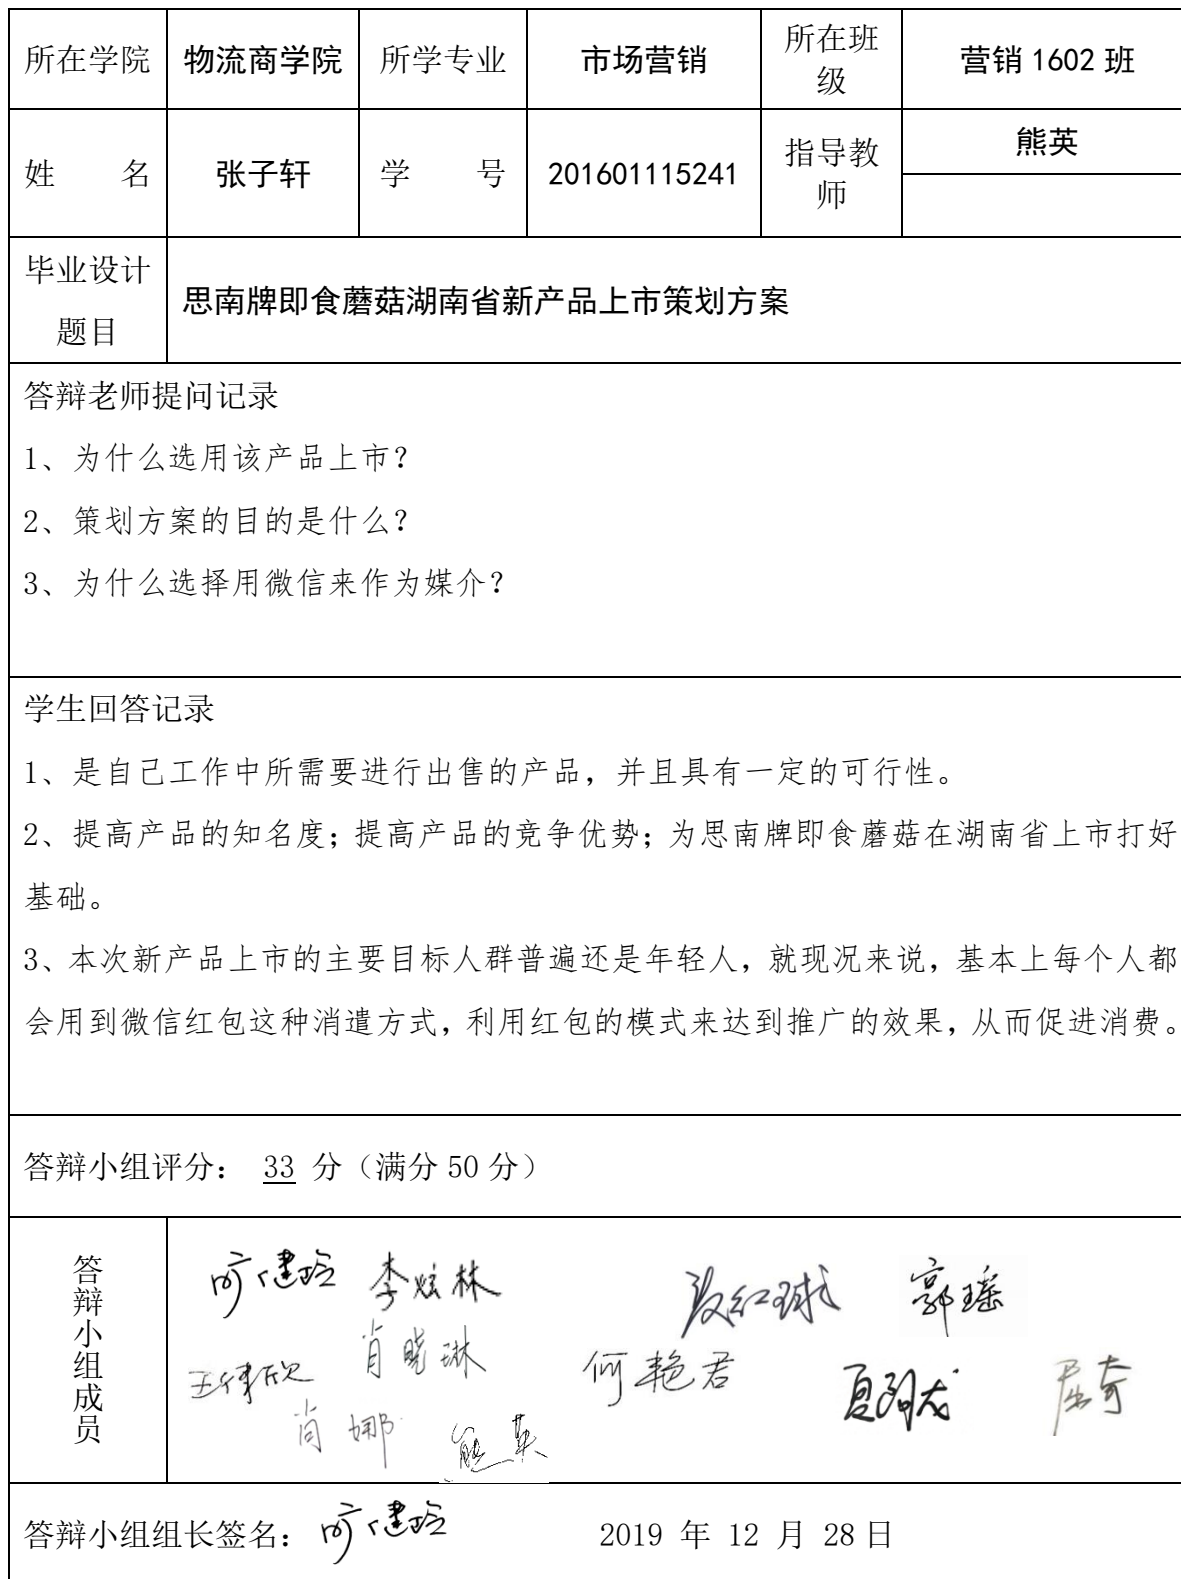 所在学院 物流商学院 所学专业 市场营销 所在班级 营销 1602 班
姓 名 张子轩 学 号 201601115241 指导教师 熊英
毕业设计题目 思南牌即食蘑菇湖南省新产品上市策划方案
答辩老师提问记录
1、为什么选用该产品上市？
2、策划方案的目的是什么？
3、为什么选择用微信来作为媒介？
学生回答记录
1、是自己工作中所需要进行出售的产品，并且具有一定的可行性。
2、提高产品的知名度；提高产品的竞争优势；为思南牌即食蘑菇在湖南省上市打好
基础。
3、本次新产品上市的主要目标人群普遍还是年轻人，就现况来说，基本上每个人都
会用到微信红包这种消遣方式，利用红包的模式来达到推广的效果，从而促进消费。
答辩小组评分： 33 分（满分 50 分）
答辩小组成员
李炫林 郭瑶
肖晓琳 何艳君
肖娜 熊英
答辩小组组长签名： 2019 年 12 月 28 日